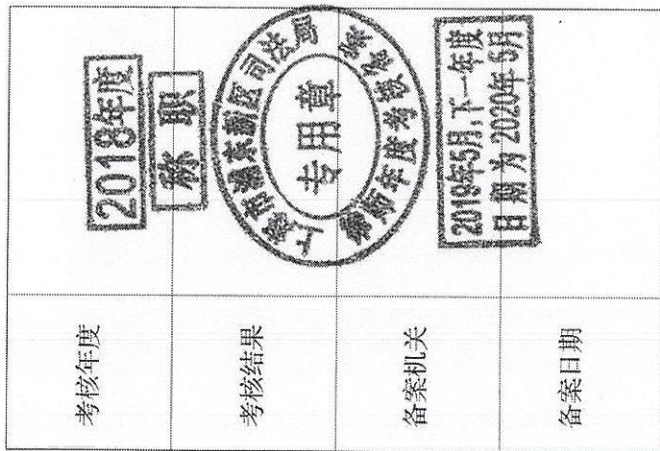 考核年度
2018年度
考核结果
称职
备案机关
上海市浦东新区司法局
专用章
律师年度考核备案
备案日期
2019年5月,下一年度
日期为2020年5月